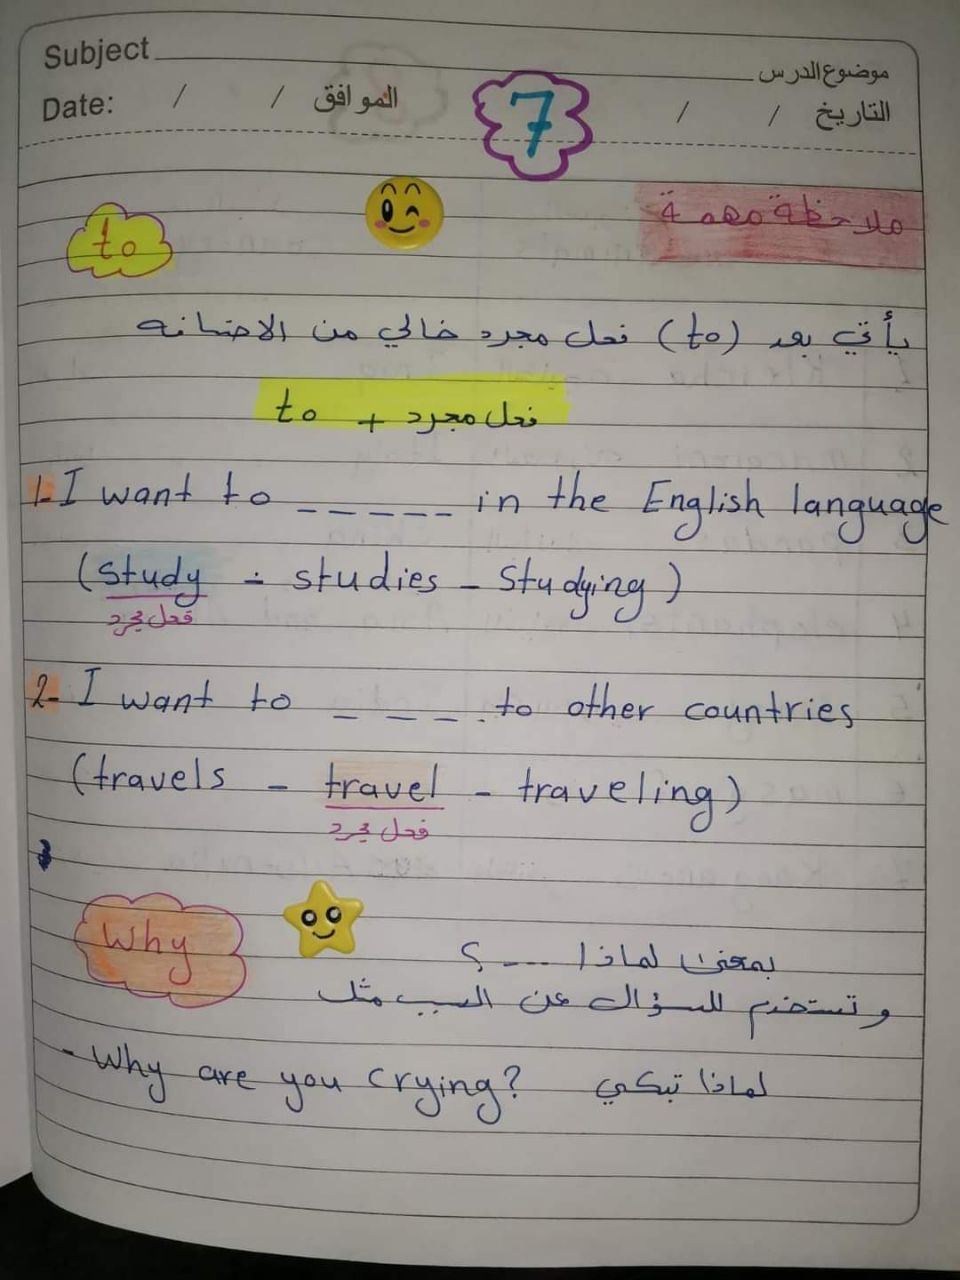 Subject موضوع الدرس
Date: / / الموافق / / التاريخ
7
ملاحظة مهمة
to
يأتي بعد (to) فعل مجرد خالي من الاضافه
to + فعل مجرد
1- I want to _ _ _ _ _ in the English language
(study - studies - studying)
فعل مجرد
2- I want to _ _ _ . to other countries
(travels - travel - traveling)
فعل مجرد
Why
بمعنى لماذا ... ؟
وتستخدم للسؤال عن السبب مثل
- Why are you crying? لماذا تبكي